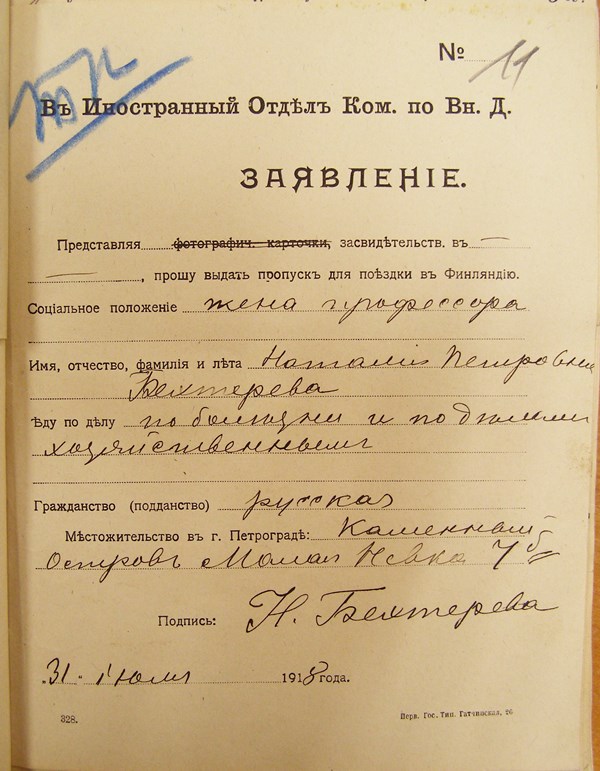 № 11
Въ Иностранный Отдѣлъ Ком. по Вн. Д.
ЗАЯВЛЕНІЕ.
Представляя фотографич. карточки, засвидѣтельств. въ —
—, прошу выдать пропускъ для поѣздки въ Финляндію.
Соціальное положеніе жена профессора
Имя, отчество, фамилія и лѣта Наталія Петровна
Бехтерева
Ѣду по дѣлу по болѣзни и по дѣламъ
хозяйственнымъ
Гражданство (подданство) русская
Мѣстожительство въ г. Петроградѣ: Каменный
Островъ Малая Невка 7б
Подпись: Н. Бехтерева
31 іюля 1918 года.
328. Перв. Гос. Тип. Гатчинская, 26